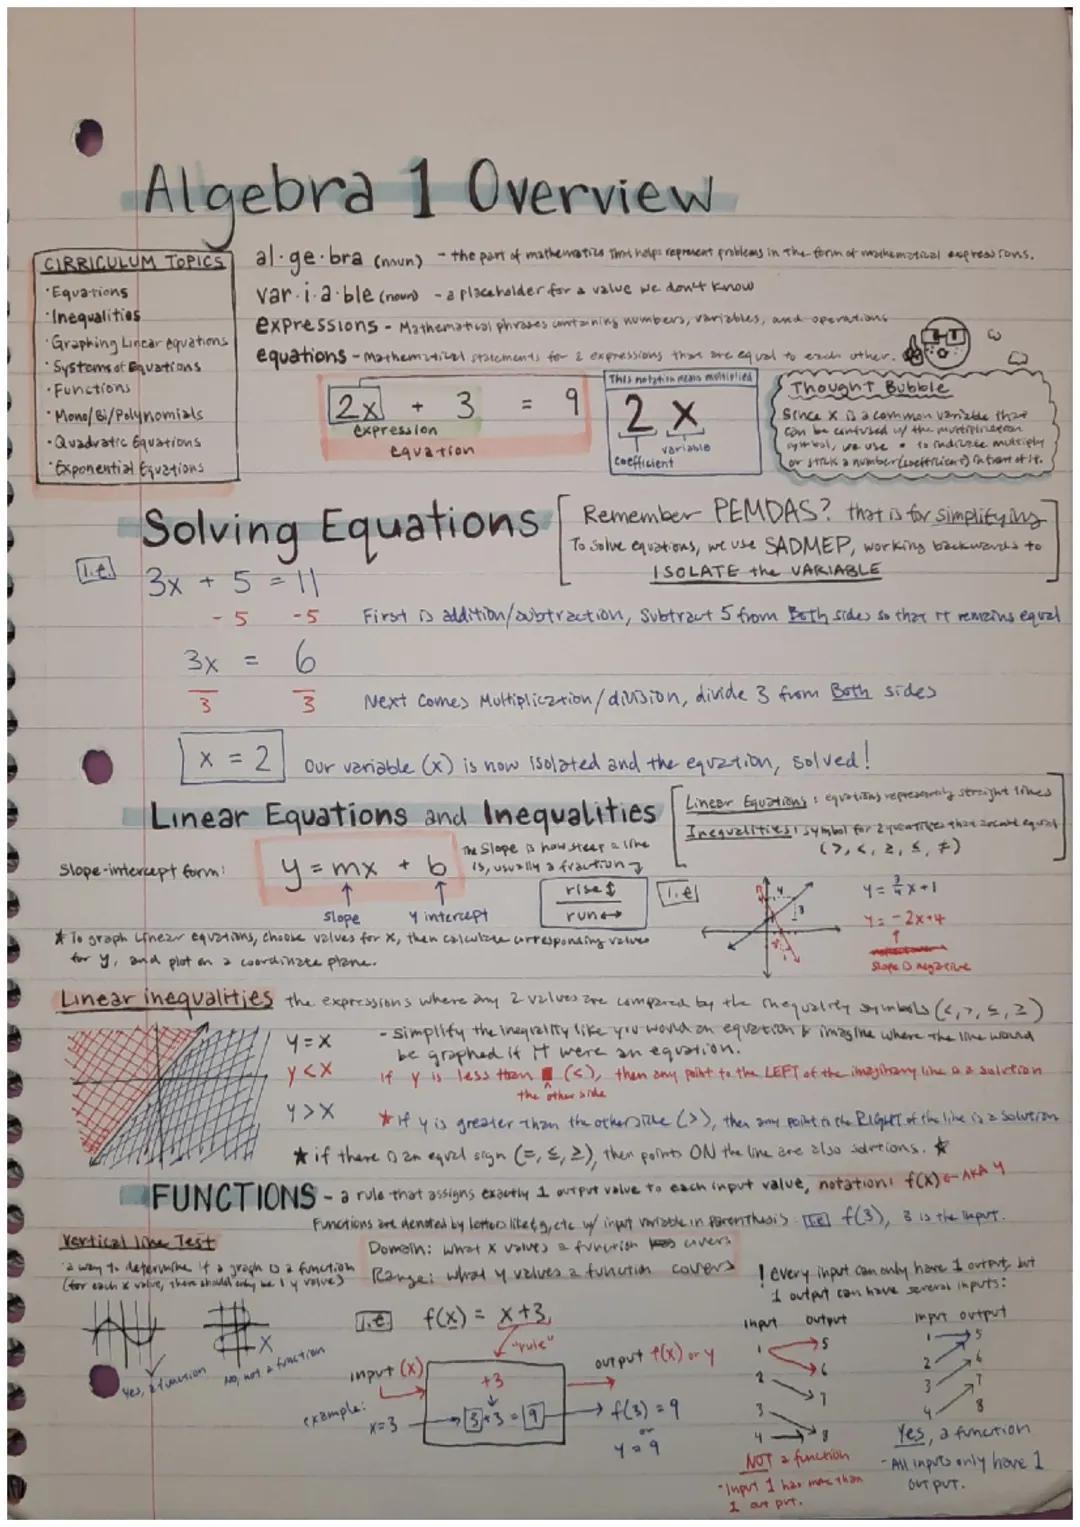 Algebra 1 Overview
CIRRICULUM TOPICS
· Equations
· Inequalities
· Graphing Linear equations
· Systems of Equations
· Functions
· Mono/Bi/Polynomials
· Quadratic Equations
· Exponential Equations
al·ge·bra (noun) - the part of mathematics that helps represent problems in the form of mathematical expressions.
var·i·a·ble (noun) - a placeholder for a value we don't know
expressions - Mathematical phrases containing numbers, variables, and operations
equations - Mathematical statements for 2 expressions that are equal to each other.
2x + 3 = 9
expression
equation
This notation means multiplied
2 x
coefficient
variable
Thought Bubble
Since x is a common variable that
can be confused w/ the multiplication
symbol, we use • to indicate multiply
or stick a number (coefficient) in front of it.
Solving Equations
Remember PEMDAS? that is for simplifying
To solve equations, we use SADMEP, working backwards to
ISOLATE the VARIABLE
i.e.
3x + 5 = 11
- 5 -5
First is addition/subtraction, Subtract 5 from Both sides so that it remains equal
3x = 6
3 3
Next comes Multiplication/division, divide 3 from Both sides
x = 2
Our variable (x) is now isolated and the equation, solved!
Linear Equations and Inequalities
Linear Equations: equations representing straight lines
Inequalities: symbol for 2 quantities that are not equal
(>, <, ≥, ≤, ≠)
Slope-intercept form:
y = mx + b
slope
y intercept
The slope is how steep a line
is, usually a fraction
rise ↕
run ↔
i.e
y = 3/4 x + 1
y = -2x+4
slope is negative
* To graph linear equations, choose values for x, then calculate corresponding values
for y, and plot on a coordinate plane.
Linear inequalities the expressions where any 2 values are compared by the inequality symbols (<, >, ≤, ≥)
y = x
y < x
y > x
- simplify the inequality like you would an equation & imagine where the line would
be graphed if it were an equation.
if y is less than (<), then any point to the LEFT of the imaginary line is a solution
the other side
* if y is greater than the other side (>), then any point to the RIGHT of the line is a solution
* if there is an equal sign (=, ≤, ≥), then points ON the line are also solutions. *
FUNCTIONS - a rule that assigns exactly 1 output value to each input value, notation: f(x) ← AKA y
Functions are denoted by letters like f, g, etc w/ input variable in parenthesis. i.e f(3), 3 is the input.
Vertical line Test
· a way to determine if a graph is a function
(for each x value, there should only be 1 y value)
Yes, a function
No, not a function
Domain: what x values a function covers
Range: what y values a function covers
i.e f(x) = x+3
"rule"
input (x)
+3
output f(x) or y
example:
x=3
3+3 = 9
f(3) = 9
or
y = 9
! every input can only have 1 output, but
1 output can have several inputs:
input output
1 5
2 6
3 7
4 8
NOT a function
- Input 1 has more than
1 output.
input output
1 5
2 6
3 7
4 8
Yes, a function
- All inputs only have 1
output.